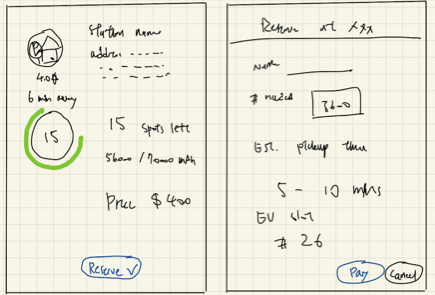 Station name
address
4.0
6 min away
15
15 spots left
56000 / 70000 mAh
Price $400
Reserve
Reserve at XXX
Name
# needed
Est. pickup time
5 - 10 mins
EV slot
# 26
Pay
Cancel